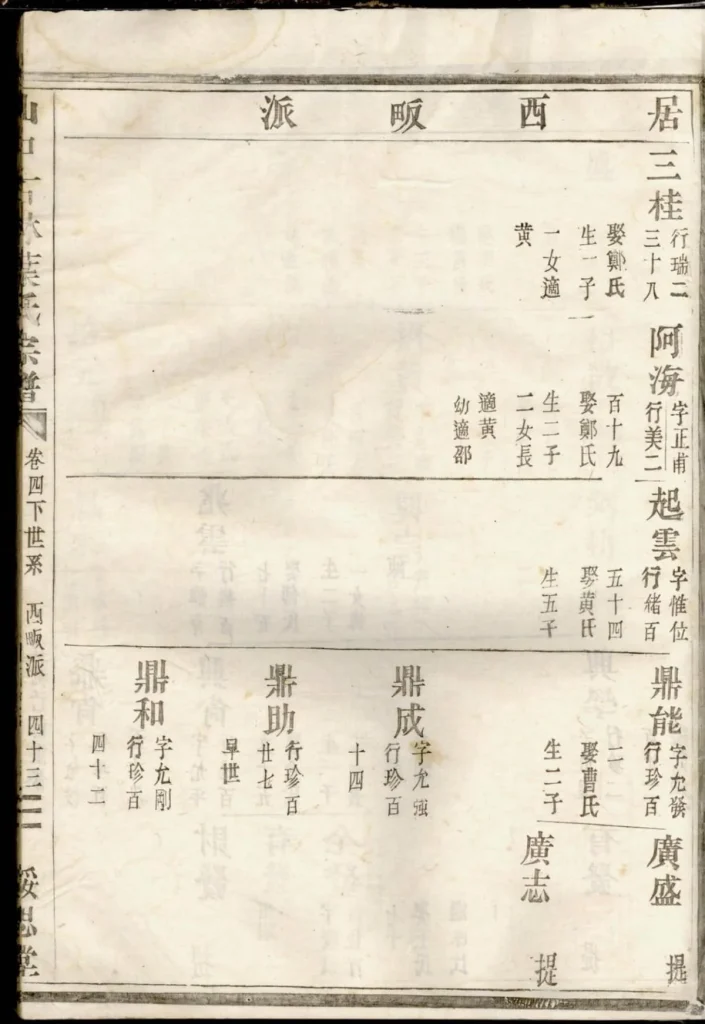 居西畈派
三桂
行瑞二
三十八
娶鄭氏
生一子
一女適
黄
阿海
字正甫
行美二
百十九
娶鄭氏
生二子
二女長
適黄
幼適邵
起雲
字惟位
行緒百
五十四
娶黄氏
生五子
鼎能
字允發
行珍百
二
娶曹氏
生二子
鼎成
字允強
行珍百
十四
鼎助
行珍百
廿七
早世
鼎和
字允剛
行珍百
四十二
廣盛
提
廣志
提
葉氏宗譜
卷四下世系
西畈派
四十三
綏思堂